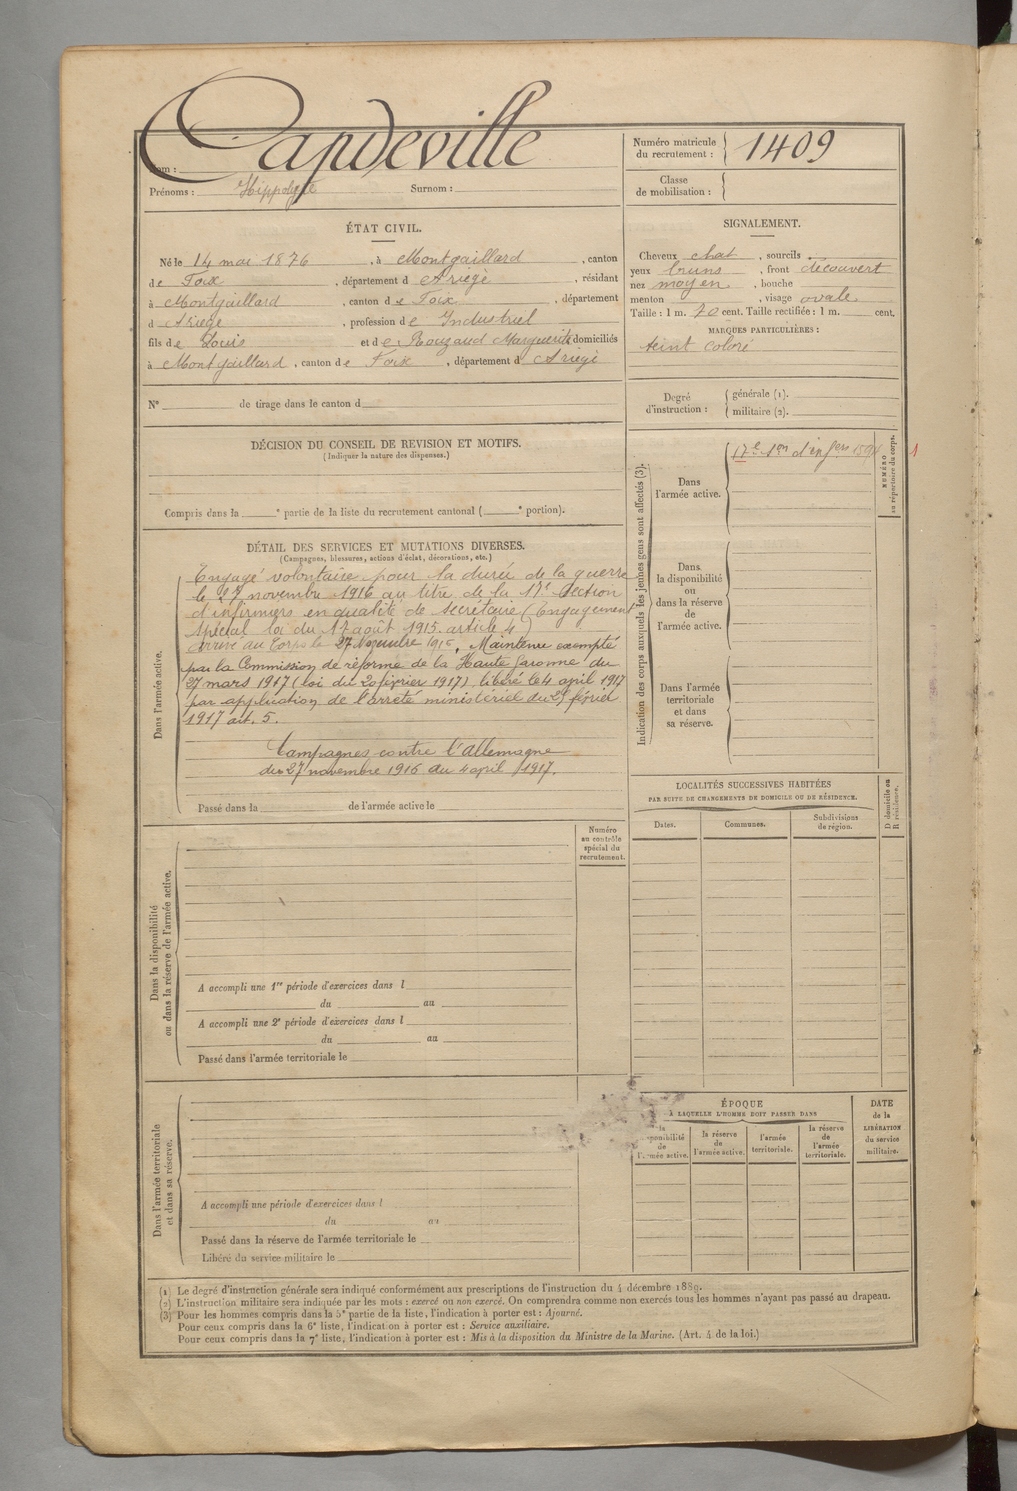 Capdeville
Nom :
Prénoms : Hippolyte Surnom :
Numéro matricule
du recrutement : 1409
Classe
de mobilisation :
ÉTAT CIVIL.
Né le 14 mai 1876, à Montgaillard, canton
de Foix, département d Ariège, résidant
à Montgaillard, canton de Foix, département
d Ariège, profession de Industriel
fils de Louis et de Rouzaud Marguerite domiciliés
à Montgaillard, canton de Foix, département d Ariège
N° de tirage dans le canton d
SIGNALEMENT.
Cheveux chat, sourcils
yeux bruns, front découvert
nez moyen, bouche
menton, visage ovale
Taille : 1 m. 70 cent. Taille rectifiée : 1 m. cent.
MARQUES PARTICULIÈRES :
teint coloré
Degré
d'instruction :
générale (1).
militaire (2).
DÉCISION DU CONSEIL DE REVISION ET MOTIFS.
(Indiquer la nature des dispenses.)
Compris dans la e partie de la liste du recrutement cantonal ( e portion).
DÉTAIL DES SERVICES ET MUTATIONS DIVERSES.
(Campagnes, blessures, actions d'éclat, décorations, etc.)
Dans l'armée active.
Engagé volontaire pour la durée de la guerre
le 17 novembre 1916 au titre de la 17e Section
d'infirmiers en qualité de secrétaire (Engagement
spécial loi du 17 août 1915. article 4)
Arrivé au Corps le 27 Novembre 1916. Maintenu exempté
par la Commission de réforme de la Haute Garonne du
27 mars 1917 (loi du 20 février 1917), libéré le 4 april 1917
par application de l'arrêté ministériel du 29 février
1917 art. 5.
Campagnes contre l'Allemagne
du 27 novembre 1916 au 4 april 1917.
Passé dans la de l'armée active le
Indication des corps auxquels les jeunes gens sont affectés (3).
Dans
l'armée active.
17e Son d'infers
NUMÉRO
au répertoire du corps.
1
Dans
la disponibilité
ou
dans la réserve
de
l'armée active.
Dans l'armée
territoriale
et dans
sa réserve.
LOCALITÉS SUCCESSIVES HABITÉES
PAR SUITE DE CHANGEMENTS DE DOMICILE OU DE RÉSIDENCE.
Dates.
Communes.
Subdivisions
de région.
D domicile ou
R résidence.
Numéro
au contrôle
spécial du
recrutement.
Dans la disponibilité
ou dans la réserve de l'armée active.
A accompli une 1re période d'exercices dans l
du au
A accompli une 2e période d'exercices dans l
du au
Passé dans l'armée territoriale le
Dans l'armée territoriale
et dans sa réserve.
A accompli une période d'exercices dans l
du au
Passé dans la réserve de l'armée territoriale le
Libéré du service militaire le
ÉPOQUE
À LAQUELLE L'HOMME DOIT PASSER DANS
la
disponibilité
de
l'armée active.
la réserve
de
l'armée active.
l'armée
territoriale.
la réserve
de
l'armée
territoriale.
DATE
de la
LIBÉRATION
du service
militaire.
(1) Le degré d'instruction générale sera indiqué conformément aux prescriptions de l'instruction du 4 décembre 1889.
(2) L'instruction militaire sera indiquée par les mots : exercé ou non exercé. On comprendra comme non exercés tous les hommes n'ayant pas passé au drapeau.
(3) Pour les hommes compris dans la 5e partie de la liste, l'indication à porter est : Ajourné.
Pour ceux compris dans la 6e liste, l'indication à porter est : Service auxiliaire.
Pour ceux compris dans la 7e liste, l'indication à porter est : Mis à la disposition du Ministre de la Marine. (Art. 4 de la loi.)